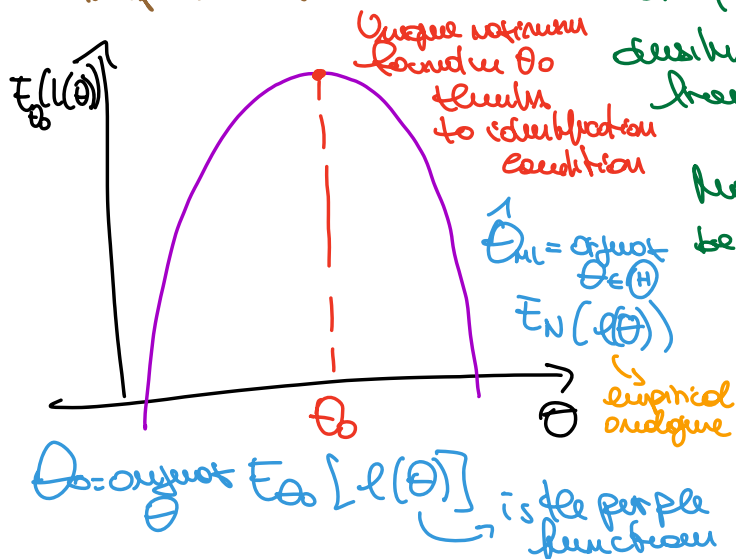 Unique maximum
found in θ₀
thanks
to identification
condition
E_θ₀(l(θ))
θ̂_ML = argmax
θ∈Θ
E_N(l(θ))
empirical
analogue
θ₀
θ
θ₀ = argmax E_θ₀[l(θ)]
θ
is the purple
function